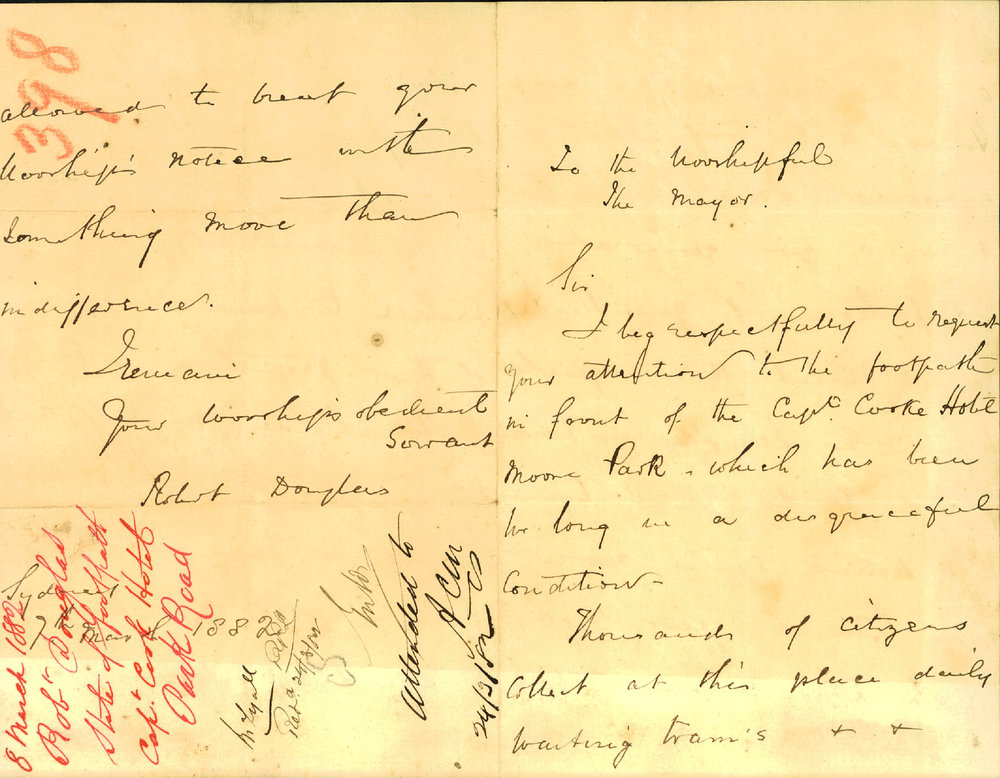 To the Worshipful
The Mayor.
Sir
I beg respectfully to request
your attention to the footpath
in front of the Capt. Cooke Hotel
Moore Park, which has been
for long in a disgraceful
Condition -
Thousands of citizens
Collect at this place daily
waiting tram's + +
398
allowed to treat your
Worship's notice with
Something more than
indifference.
I remain
Your Worship's obedient
Servant
Robert Douglas
Sydney
7th March 1882
8 March 1882
Robt Douglas
State of footpath
Capt Cook Hotel
Park Road
Mr Lyall
Attended to
24/3/82